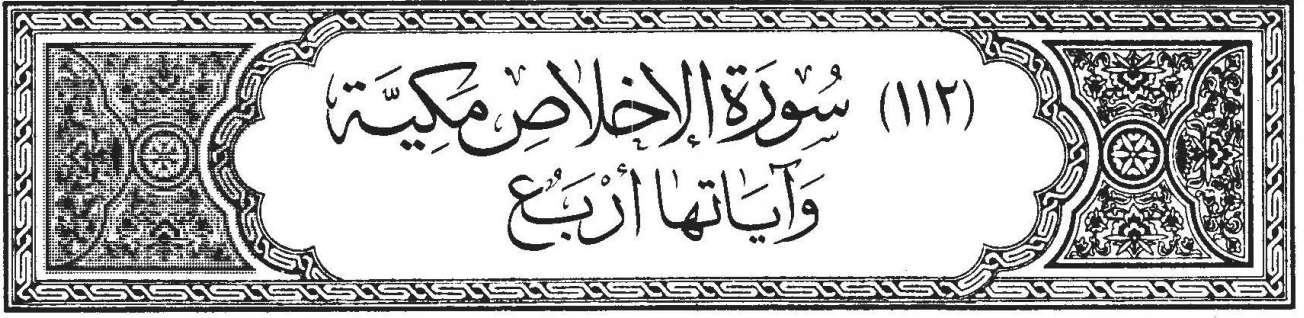 (١١٢) سُورَة الإخلاصِ مَكِيَّة
وَآيَاتها أَرْبَعُ